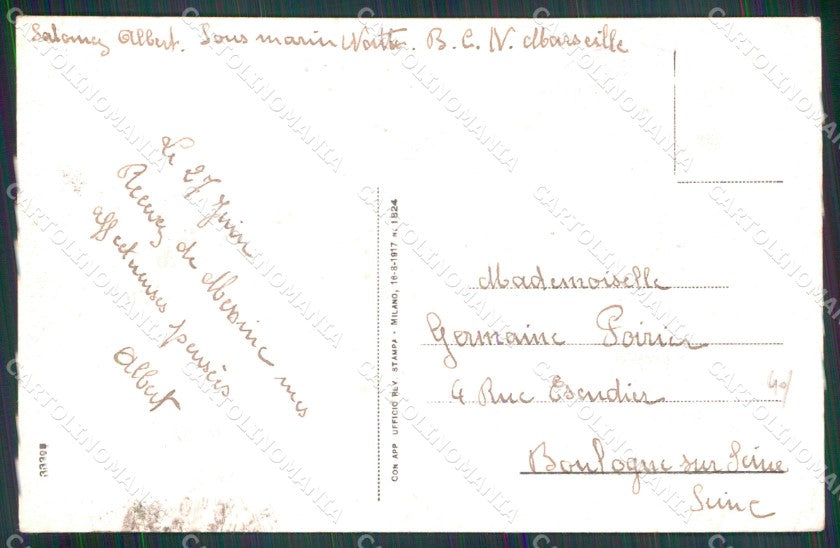 Albert. Sous marin B. C. N. Marseille
Le 27 Juin
Recevez de Messine mes
affectueuses pensées
Albert
CON APP UFFICIO REV. STAMPA - MILANO, 16-8-1917 N. 1824
Mademoiselle
Germaine Poirier
4 Rue Escudier
Boulogne sur Seine
Seine
CARTOLINOMANIA